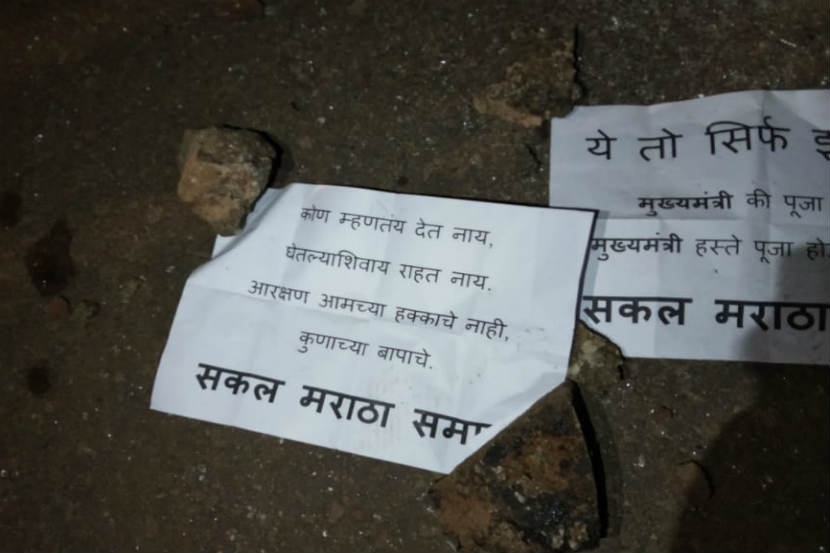 कोण म्हणतंय देत नाय,
घेतल्याशिवाय राहत नाय.
आरक्षण आमच्या हक्काचे नाही,
कुणाच्या बापाचे.
सकल मराठा
ये तो सिर्फ
मुख्यमंत्री की पूजा
मुख्यमंत्री हस्ते पूजा
सकल मराठा